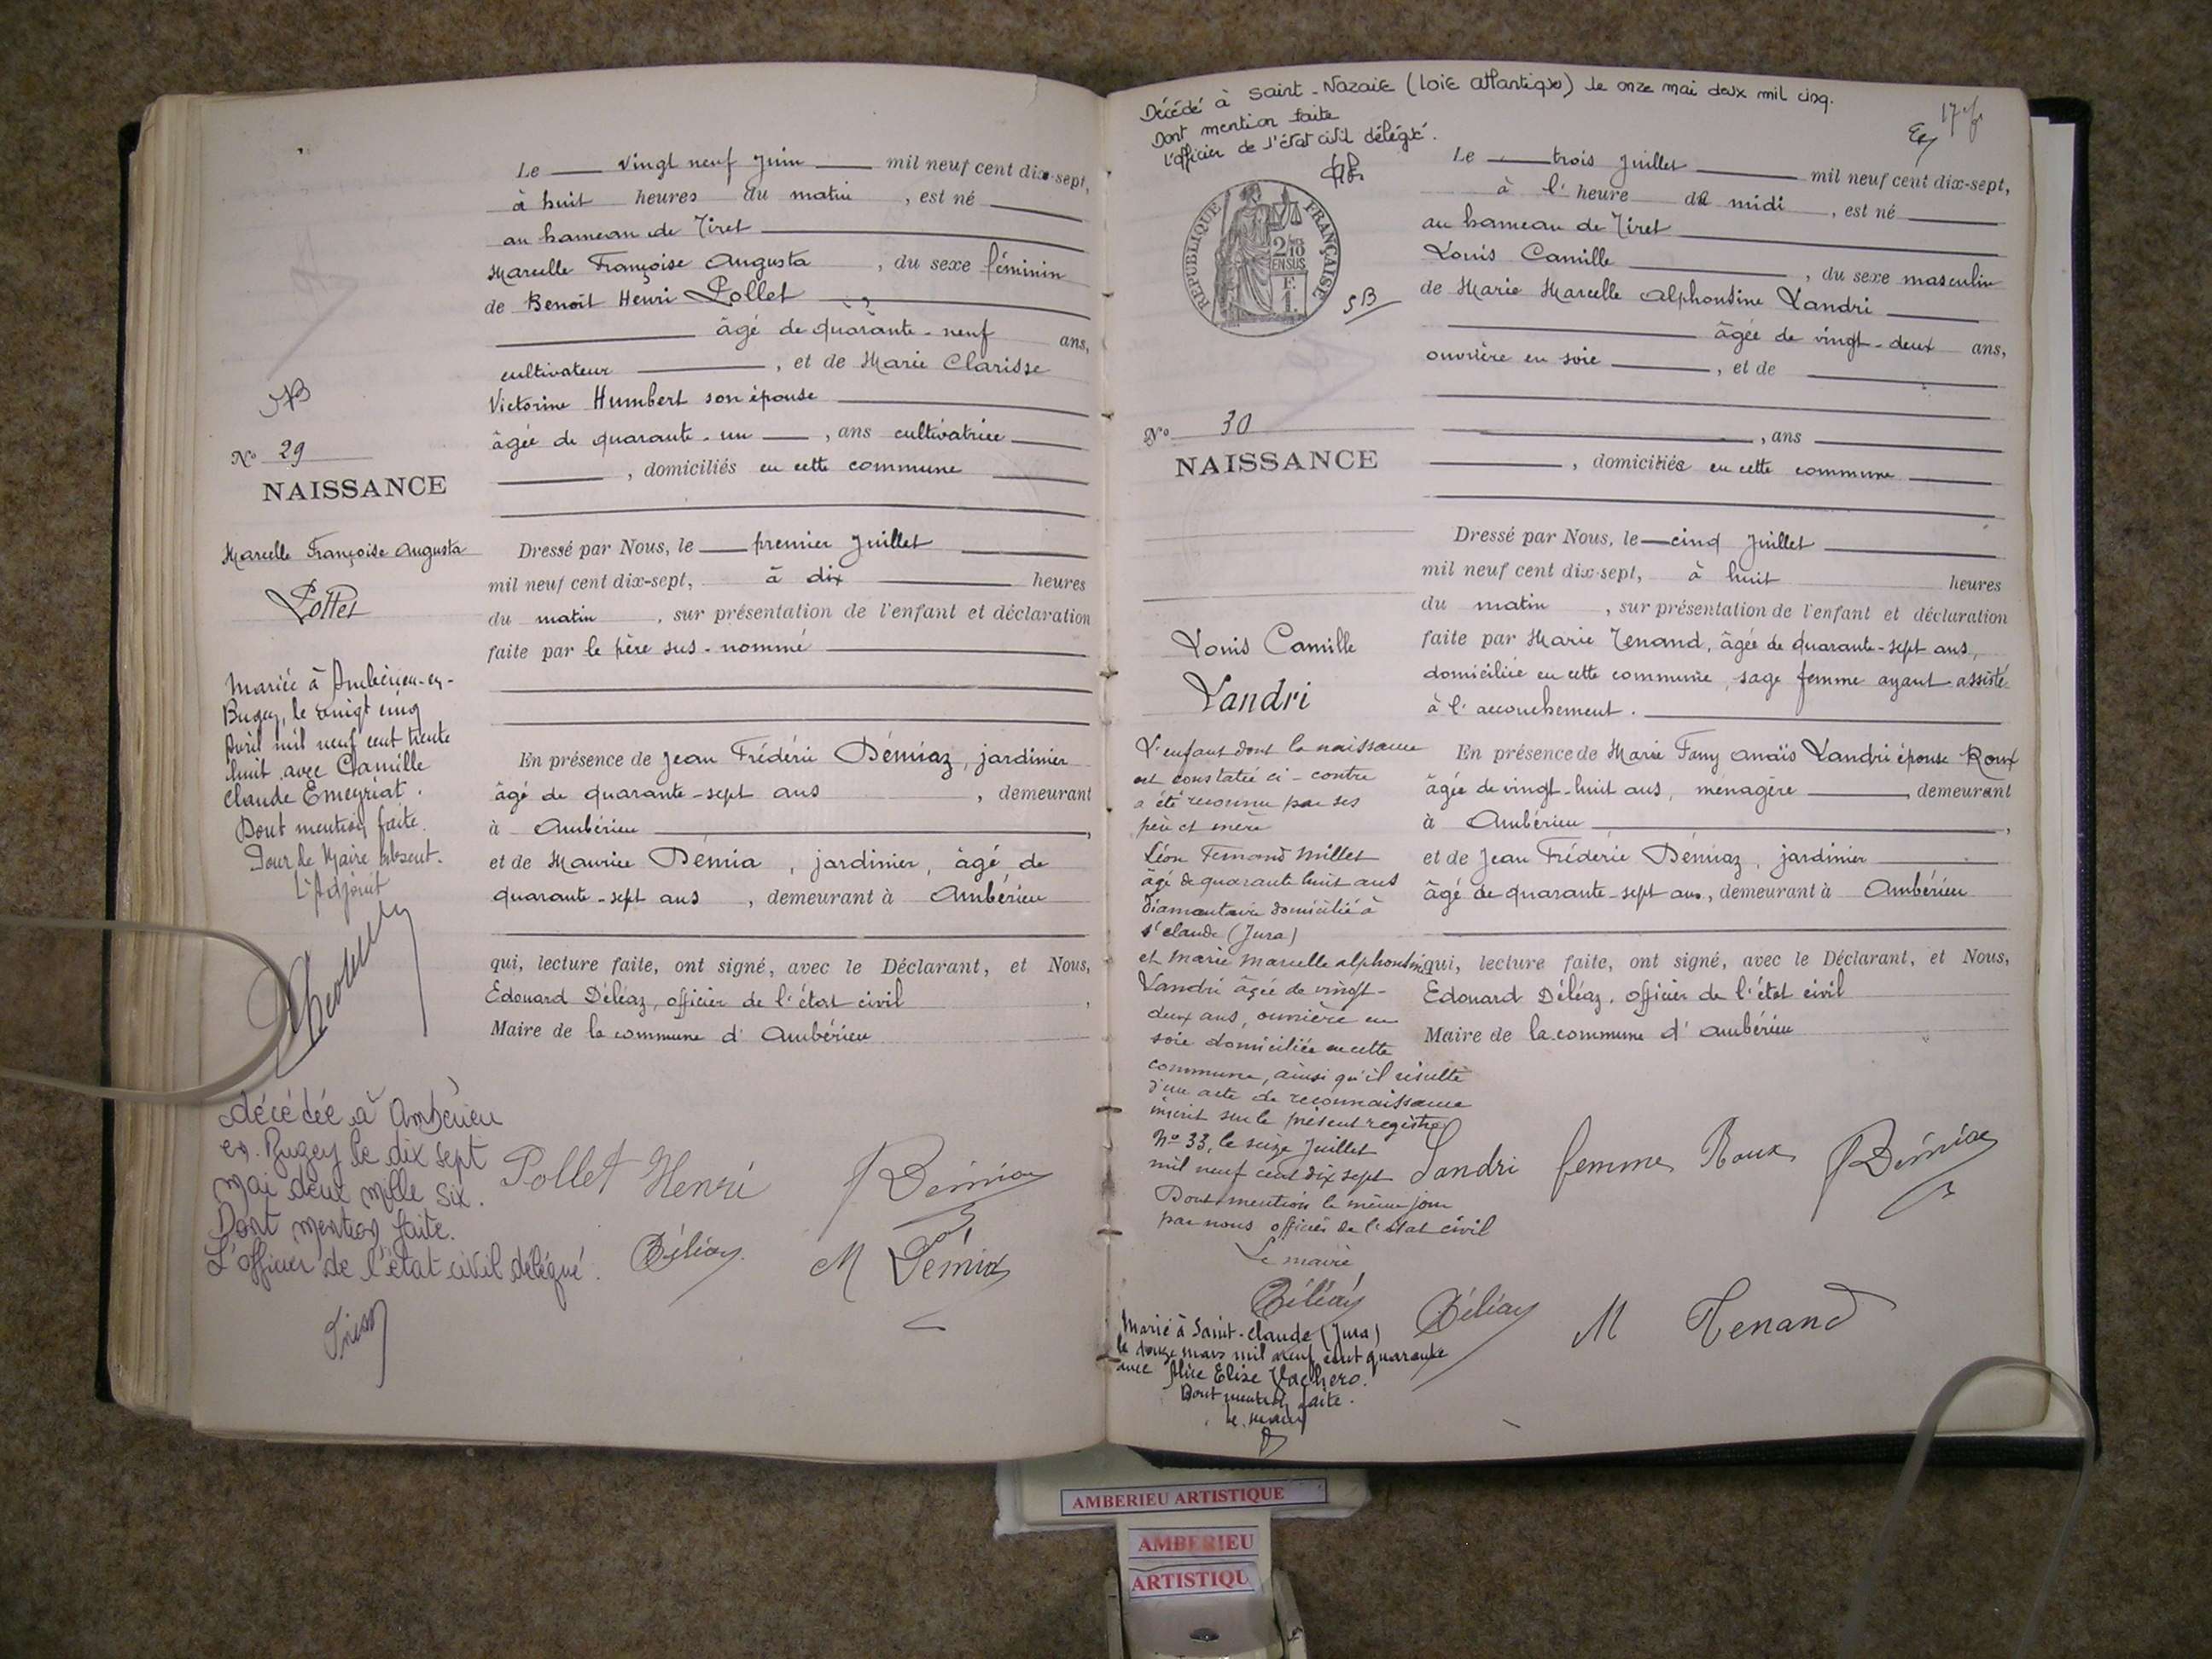 Le vingt neuf Juin mil neuf cent dix-sept,
à huit heures du matin , est né
au hameau de Tiret
Marcelle Françoise Augusta , du sexe féminin
de Benoît Henri Pollet
âgé de quarante-neuf ans,
cultivateur , et de Marie Clarisse
Victorine Humbert son épouse
âgée de quarante-un , ans cultivatrice
, domiciliés en cette commune
Nº 29
NAISSANCE
Marcelle Françoise Augusta
Pollet
Dressé par Nous, le premier Juillet
mil neuf cent dix-sept, à dix heures
du matin , sur présentation de l'enfant et déclaration
faite par le père sus-nommé
En présence de Jean Frédéric Démiaz, jardinier
âgé de quarante-sept ans , demeurant
à Ambérieu ,
et de Maurice Démia , jardinier, âgé de
quarante-sept ans , demeurant à Ambérieu
qui, lecture faite, ont signé, avec le Déclarant, et Nous,
Edouard Déléaz, officier de l'état civil ,
Maire de la commune d'Ambérieu
Mariée à Ambérieu-en-
Bugey, le vingt cinq
Avril mil neuf cent trente
huit avec Camille
Claude Emeyriat.
Dont mention faite.
Pour le Maire absent.
L'Adjoint
décédée à Ambérieu
en Bugey le dix sept
mai deux mille six.
Dont mention faite.
L'officier de l'état civil délégué.
Pollet Henri
Démiaz
Déléaz
M Démia
Décédé à Saint-Nazaire (Loire Atlantique) le onze mai deux mil cinq.
Dont mention faite
L'officier de l'état civil délégué.
17
RÉPUBLIQUE FRANÇAISE
2/10
EN SUS
F.
1.
SB
Le trois Juillet mil neuf cent dix-sept,
à l'heure de midi , est né
au hameau de Tiret
Louis Camille , du sexe masculin
de Marie Marcelle Alphonsine Landri
âgée de vingt-deux ans,
ouvrière en soie , et de
, ans
, domiciliée en cette commune
Nº 30
NAISSANCE
Louis Camille
Landri
Dressé par Nous, le cinq Juillet
mil neuf cent dix-sept, à huit heures
du matin , sur présentation de l'enfant et déclaration
faite par Marie Tenand, âgée de quarante-sept ans,
domiciliée en cette commune, sage femme ayant assisté
à l'accouchement.
En présence de Marie Fany Anaïs Landri épouse Roux
âgée de vingt-huit ans, ménagère , demeurant
à Ambérieu ,
et de Jean Frédéric Démiaz, jardinier
âgé de quarante-sept ans, demeurant à Ambérieu
qui, lecture faite, ont signé, avec le Déclarant, et Nous,
Edouard Déléaz, officier de l'état civil
Maire de la commune d'Ambérieu
L'enfant dont la naissance
est constatée ci-contre
a été reconnu par ses
père et mère
Léon Fernand Millet
âgé de quarante huit ans
diamantaire domicilié à
St Claude (Jura)
et Marie Marcelle Alphonsine
Landri âgée de vingt-
deux ans, ouvrière en
soie domiciliée en cette
commune, ainsi qu'il résulte
d'un acte de reconnaissance
inscrit sur le présent registre
Nº 33, le seize Juillet
mil neuf cent dix sept
Dont mention le même jour
par nous officier de l'état civil
Le maire,
Déléaz
Landri femme Roux
Démiaz
Déléaz
M Tenand
Marié à Saint-Claude (Jura)
le douze mars mil neuf cent quarante
avec Alice Elise Vachero.
Dont mention faite.
Le Maire
AMBERIEU ARTISTIQUE
AMBERIEU
ARTISTIQU